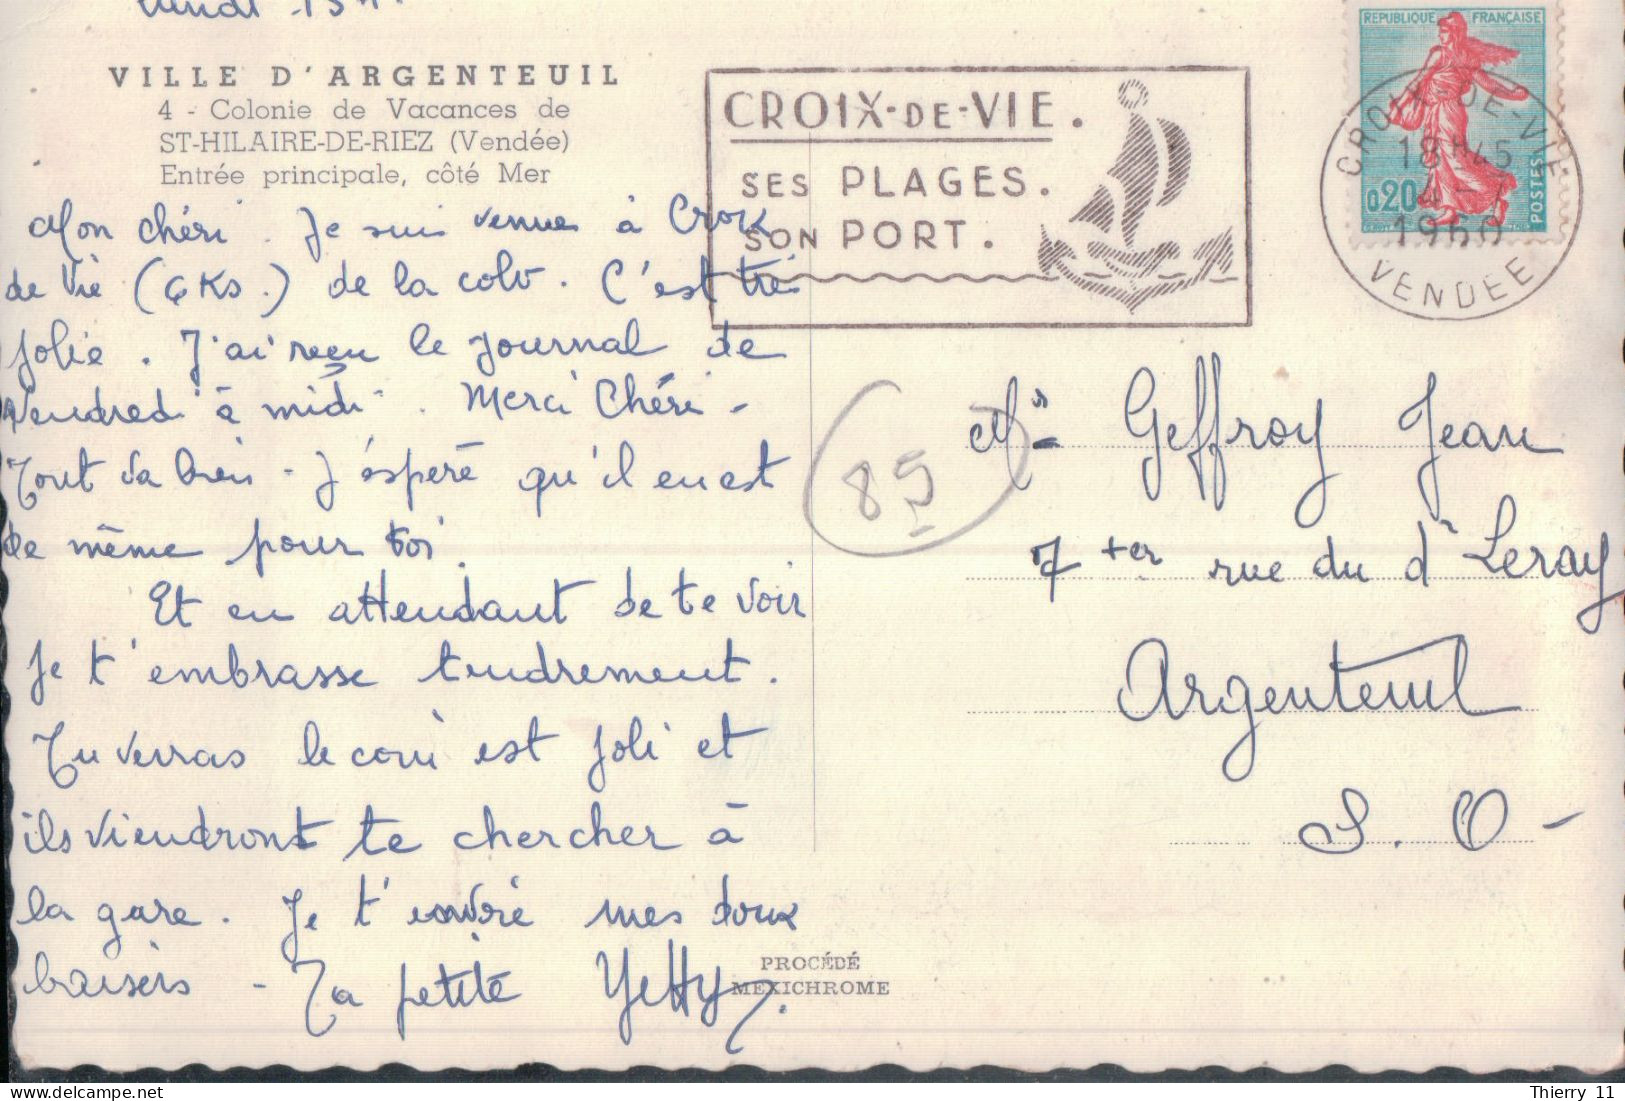 Lundi 15 H
VILLE D'ARGENTEUIL
4 - Colonie de Vacances de
ST-HILAIRE-DE-RIEZ (Vendée)
Entrée principale, côté Mer
Mon chéri. Je suis venue à Croix
de Vie (6 Ks.) de la colo. C'est très
jolie. J'ai reçu le journal de
Vendredi à midi. Merci Chéri -
Tout va bien - J'éspère qu'il en est
de même pour toi.
Et en attendant de te voir
Je t'embrasse tendrement.
Tu verras le coin est joli et
ils viendront te chercher à
la gare. Je t'envoie mes doux
baisers - Ta petite Yetty.
CROIX-DE-VIE.
SES PLAGES.
SON PORT.
REPUBLIQUE FRANÇAISE
0,20
POSTES
CROIX-DE-VIE
18H45
4-7
1960
VENDEE
85
Mr Geffroy Jean
7 ter rue du dr Leray
Argenteuil
S. O -
PROCÉDÉ
MEXICHROME
Thierry 11